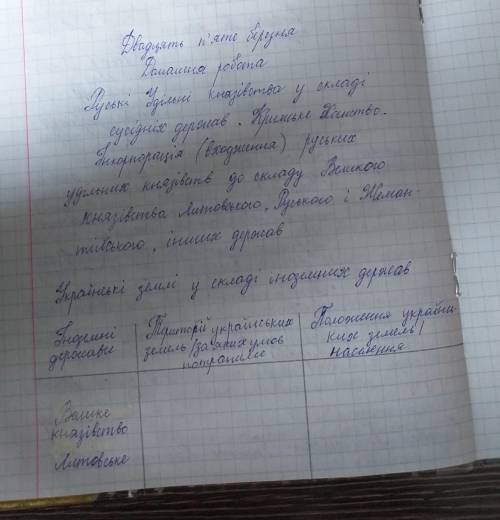 Двадцять п'яте березня
Домашня робота
Руські Удільні князівства у складі
сусідніх держав. Кримське Ханство.
Інкорпорація (входження) руських
удільних князівств до складу Великого
князівства Литовського, Руського і Жемай-
тійського, інших держав
Українські землі у складі іноземних держав
Іноземні держави
Території українських земель / за яких умов потрапили
Положення україн- ких земель / населення
Велике
князівство
Литовське